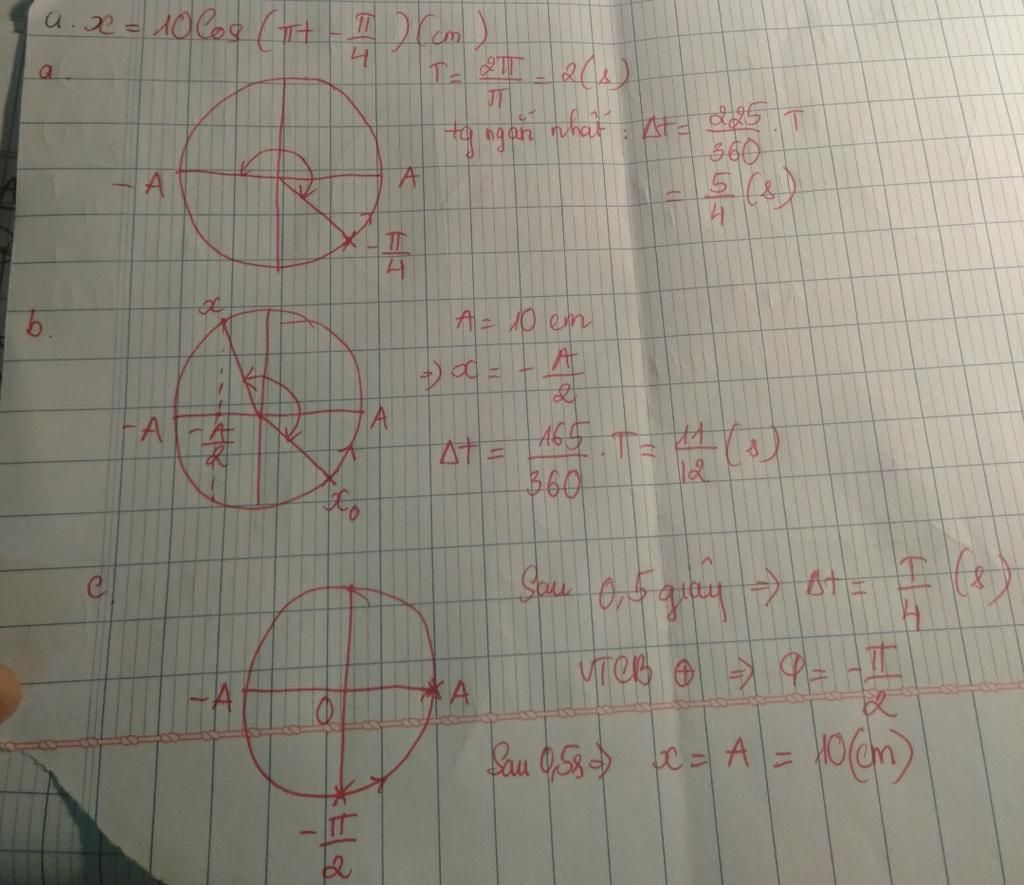 a. x = 10 cos (πt - π/4) (cm)
a.
T = 2π/π = 2 (s)
tg ngắn nhất : Δt = 225/360 . T
= 5/4 (s)
-A
A
-π/4
b.
x
A = 10 cm
=> x = - A/2
-A
-A/2
A
Δt = 165/360 . T = 11/12 (s)
x₀
c.
Sau 0,5 giây => Δt = T/4 (s)
VTCB ⊕ => φ = - π/2
-A
O
A
Sau 0,5s => x = A = 10 (cm)
-π/2